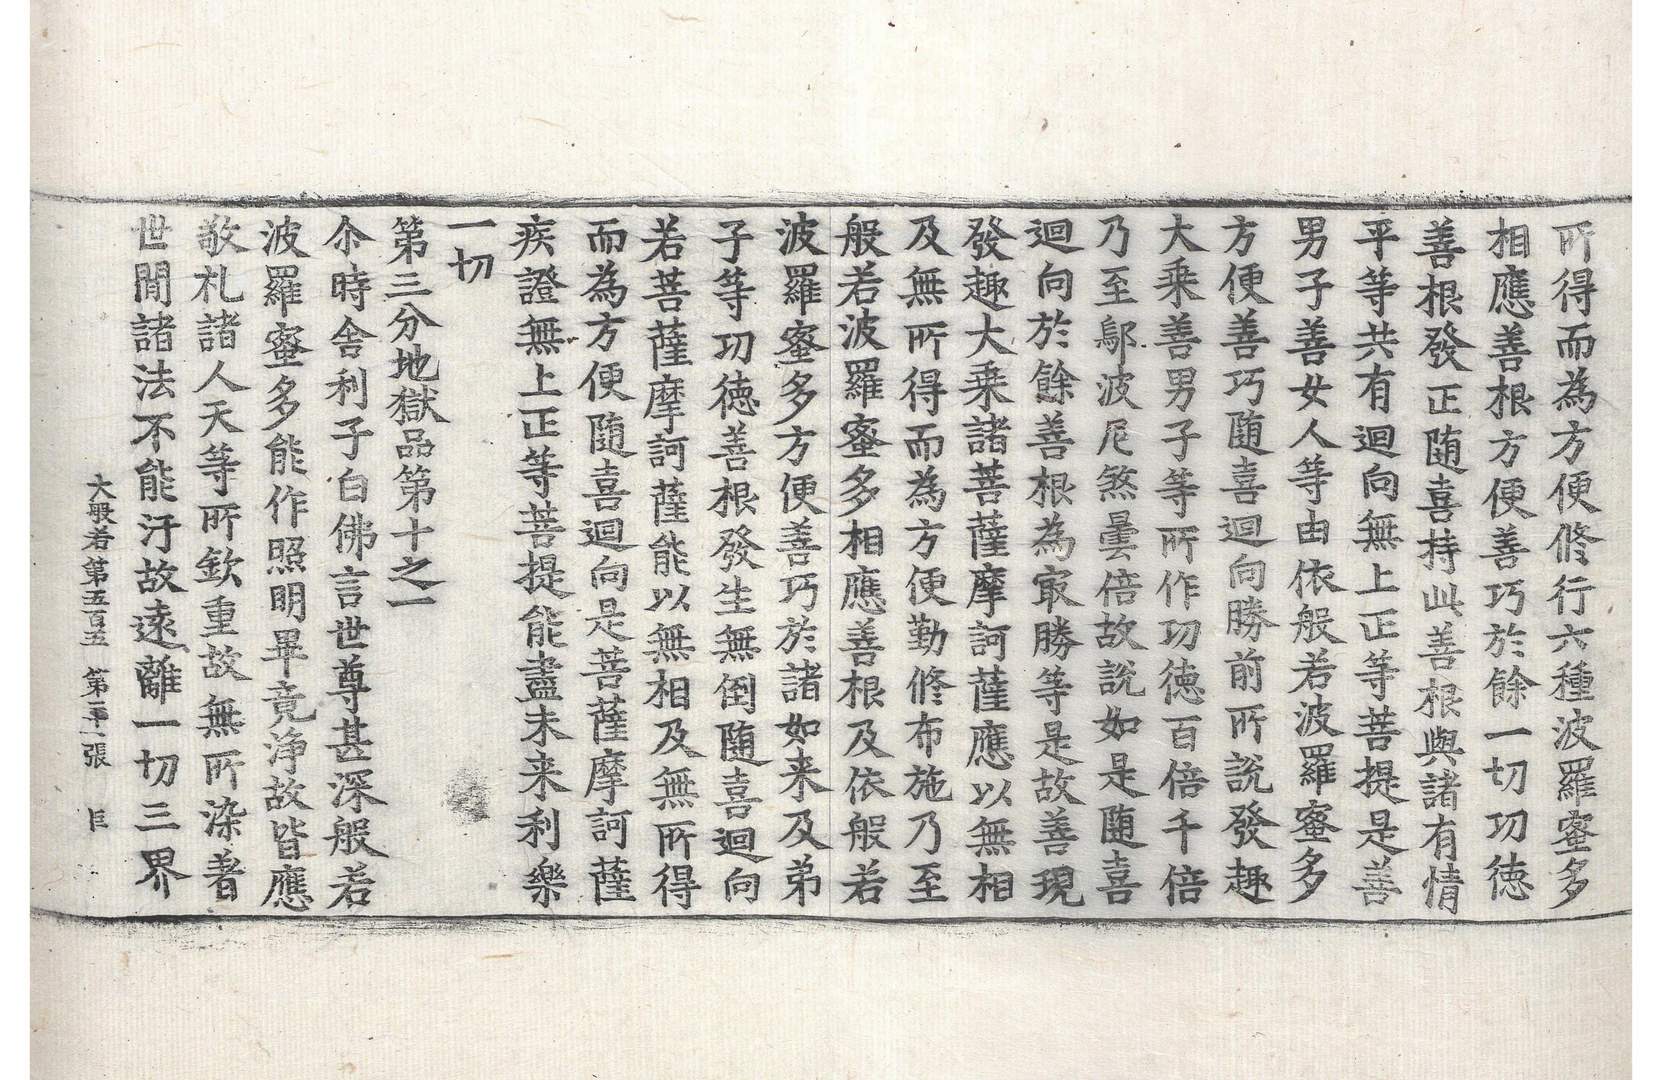 所得而為方便修行六種波羅蜜多
相應善根方便善巧於餘一切功德
善根發正随喜持此善根與諸有情
平等共有迴向無上正等菩提是善
男子善女人等由依般若波羅蜜多
方便善巧随喜迴向勝前所說發趣
大乘善男子等所作功德百倍千倍
乃至鄔波尼煞曇倍故說如是随喜
迴向於餘善根為冣勝等是故善現
發趣大乘諸菩薩摩訶薩應以無相
及無所得而為方便勤修布施乃至
般若波羅蜜多相應善根及依般若
波羅蜜多方便善巧於諸如来及弟
子等功德善根發生無倒随喜迴向
若菩薩摩訶薩能以無相及無所得
而為方便随喜迴向是菩薩摩訶薩
疾證無上正等菩提能盡未来利樂
一切
第三分地獄品第十之一
尒時舍利子白佛言世尊甚深般若
波羅蜜多能作照明畢竟淨故皆應
敬礼諸人天等所欽重故無所染著
世間諸法不能汙故遠離一切三界
大般若第五百五 第二十一張